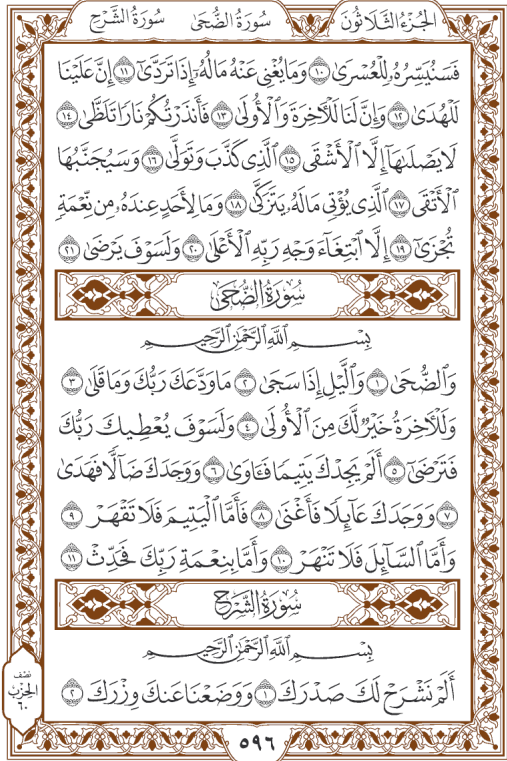 الجُزْءُ الثَّلَاثُونَ سُورَةُ الضُّحَى سُورَةُ الشَّرْحِ
فَسَنُيَسِّرُهُۥ لِلْعُسْرَىٰ ١٠ وَمَا يُغْنِي عَنْهُ مَالُهُۥٓ إِذَا تَرَدَّىٰٓ ١١ إِنَّ عَلَيْنَا
لَلْهُدَىٰ ١٢ وَإِنَّ لَنَا لَلْـَٔاخِرَةَ وَٱلْأُولَىٰ ١٣ فَأَنذَرْتُكُمْ نَارًا تَلَظَّىٰ ١٤
لَا يَصْلَىٰهَآ إِلَّا ٱلْأَشْقَى ١٥ ٱلَّذِي كَذَّبَ وَتَوَلَّىٰ ١٦ وَسَيُجَنَّبُهَا
ٱلْأَتْقَى ١٧ ٱلَّذِي يُؤْتِي مَالَهُۥ يَتَزَكَّىٰ ١٨ وَمَا لِأَحَدٍ عِندَهُۥ مِن نِّعْمَةٍ
تُجْزَىٰٓ ١٩ إِلَّا ٱبْتِغَآءَ وَجْهِ رَبِّهِ ٱلْأَعْلَىٰ ٢٠ وَلَسَوْفَ يَرْضَىٰ ٢١
سُورَةُ الضُّحَى
بِسْمِ ٱللَّهِ ٱلرَّحْمَٰنِ ٱلرَّحِيمِ
وَٱلضُّحَىٰ ١ وَٱلَّيْلِ إِذَا سَجَىٰ ٢ مَا وَدَّعَكَ رَبُّكَ وَمَا قَلَىٰ ٣
وَلَلْـَٔاخِرَةُ خَيْرٌ لَّكَ مِنَ ٱلْأُولَىٰ ٤ وَلَسَوْفَ يُعْطِيكَ رَبُّكَ
فَتَرْضَىٰٓ ٥ أَلَمْ يَجِدْكَ يَتِيمًا فَـَٔاوَىٰ ٦ وَوَجَدَكَ ضَآلًّا فَهَدَىٰ
٧ وَوَجَدَكَ عَآئِلًا فَأَغْنَىٰ ٨ فَأَمَّا ٱلْيَتِيمَ فَلَا تَقْهَرْ ٩
وَأَمَّا ٱلسَّآئِلَ فَلَا تَنْهَرْ ١٠ وَأَمَّا بِنِعْمَةِ رَبِّكَ فَحَدِّثْ ١١
سُورَةُ الشَّرْحِ
بِسْمِ ٱللَّهِ ٱلرَّحْمَٰنِ ٱلرَّحِيمِ
أَلَمْ نَشْرَحْ لَكَ صَدْرَكَ ١ وَوَضَعْنَا عَنكَ وِزْرَكَ ٢
نصف
الحزب
٦٠
٥٩٦